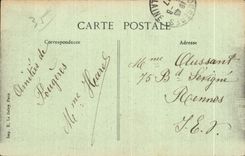 35
CARTE POSTALE
Correspondance
Adresse
Amitiés de
Fougères
Mme Huard
Mme Aussant
75 Bd Sévigné
Rennes
I.E.V.
Imp. E. Le Deley Paris